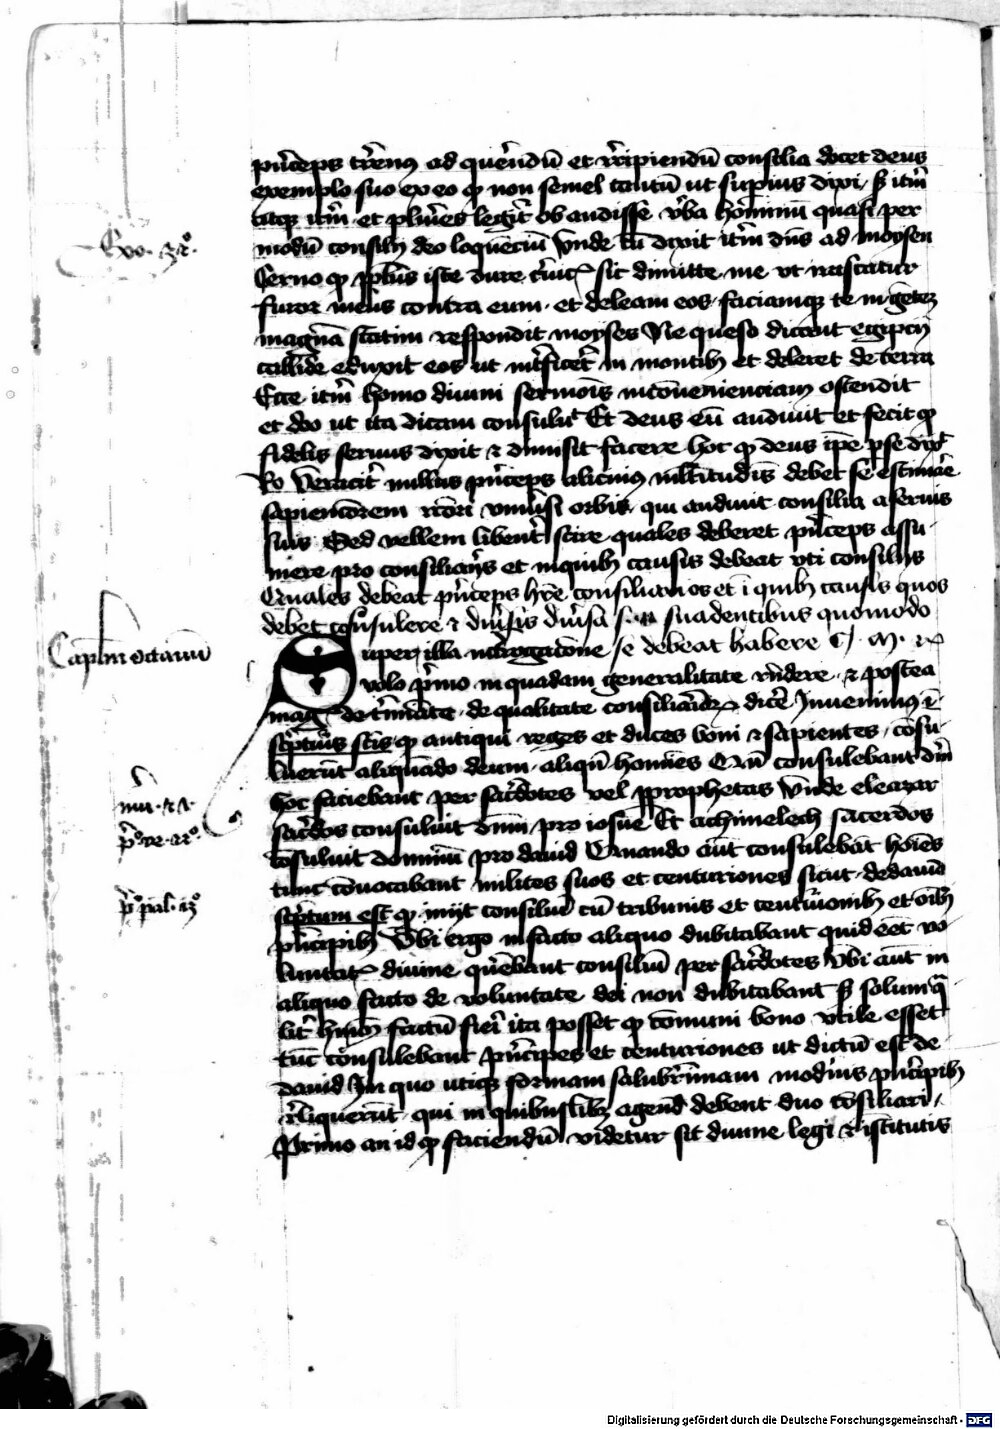 pri̅ceps tr̅renus ad quere̅ndu̅ et r̅cipiendu̅ consilia docet deus
exemplo suo ex eo q̅ non semel tantu̅ ut supius dixi s̅ itm̅
atq̅ itm̅ et plur̅es legit̅ ob audisse v̅ba homi̅nu̅ quasi per
modu̅ consilij deo loque̅ciu̅ Unde cu̅ dixit itm̅ dn̅s ad moysen
Cerno q̅ ppl̅us iste dure c̅uic̅ sit dimitte me vt irascatur
furor meus contra eum et deleam eos faciamq̅ te in ge̅tez
magna̅ statim respondit moyses Ne queso dicant egipcij
callide eduxit eos ut int̅ficer̅t in montib̅ et deleret de terra
Ecce itm̅ homo diuini sermo̅is inco̅ueniencia̅m ostendit
et deo ut ita dicam consulit̅ Et deus eu̅ audiuit et fecit q̅
fidelis seruus dixit et dimisit facere hoc q̅ deus ip̅e p̅ se dix̅t
Ro Veracit̅ nullus pri̅ceps alicuius ml̅titudi̅s debet se estimar̅e
sapiencio̅rem rc̅ori vniu̅si orbis qui audiuit consilia a seruis
suis Sed vellem libent̅ scire quales deberet pri̅ceps assu
mere pro consiliar̅ijs et in quib̅ causis debeat vti consilijs
Quales debeat pri̅ceps hr̅e consiliarios et i̅ quib̅ causis quos
debet co̅sulere et diu̅sis diu̅sa suadentibus quomodo
Super illa int̅rogacione se debeat habere C M
volo pri̅mo in quadam generalitate rn̅dere et postea
mag̅ determi̅ate de qualitate consiliario̅r̅ dicer̅e Inuenimus i̅
sc̅ptur̅is sc̅is q̅ antiqui reges et duces boni et sapientes co̅su
luerut̅ aliqua̅do deum aliqn̅ homi̅es Qn̅ consulebant dm̅
hoc faciebant per sac̅dotes vel prophetas Unde eleazar
sac̅dos consuluit dn̅m pro iosue Et achimelech sacerdos
co̅suluit dominu̅ pro dauid Quando aut̅ consuleba̅t hoi̅es
tunc co̅uocabant milites suos et centuriones sicut de dauid
sc̅ptum est q̅ inijt consiliu̅ cu̅ tribunis et centuri̅onib̅ et oi̅b̅
pri̅cipib̅ Ubi ergo in facto aliquo dubitabant quid ee̅t vo
luntat̅ diuine quer̅ebant consiliu̅ per sac̅dotes Ubi aut̅ in
aliquo facto de voluntate dei non dubitabant s̅ solum q̅a
lit̅ hui̅os factu̅ fieri̅ ita posset q̅ co̅muni bono vtile esset
tu̅c co̅sulebant pri̅cipes et centuriones ut dictu̅ est de
dauid In quo utiq̅ formam salubri̅mam moder̅nis pri̅cipib̅
r̅liqueru̅t qui in quibuslib̅z agend̅ debent duo co̅siliari
Primo an id q̅ faciendu̅ videtur sit diuine legi et i̅stitutis
Exo. 32º.
Caplm̅ octauu̅
nu. 27.
pº re. 22º.
pº pal. 13º
Digitalisierung gefördert durch die Deutsche Forschungsgemeinschaft - DFG